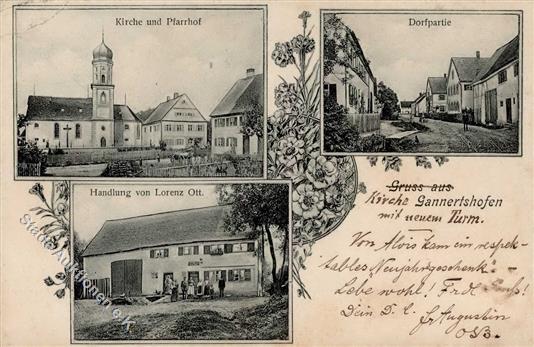 Kirche und Pfarrhof
Dorfpartie
Handlung von Lorenz Ott.
Gruss aus
Kirche Gannertshofen
mit neuem Turm.
Von Alois kam ein respek-
tables Neujahrsgeschenk. -
Lebe wohl!
Dein
Augustin
OSB.